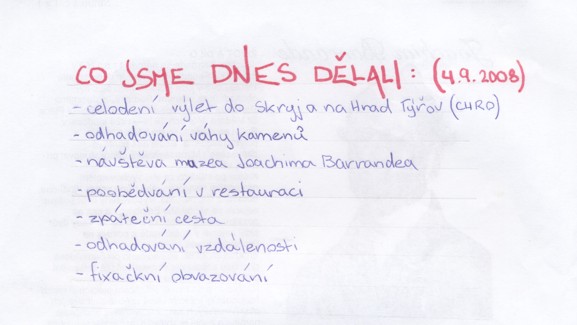 CO JSME DNES DĚLALI: (4.9.2008)
- celodení výlet do Skryj a na Hrad Týřov (CHRO)
- odhadování váhy kamenů
- návštěva muzea Joachima Barrandea
- poobědvání v restauraci
- zpáteční cesta
- odhadování vzdálenosti
- fixačkní obvazování